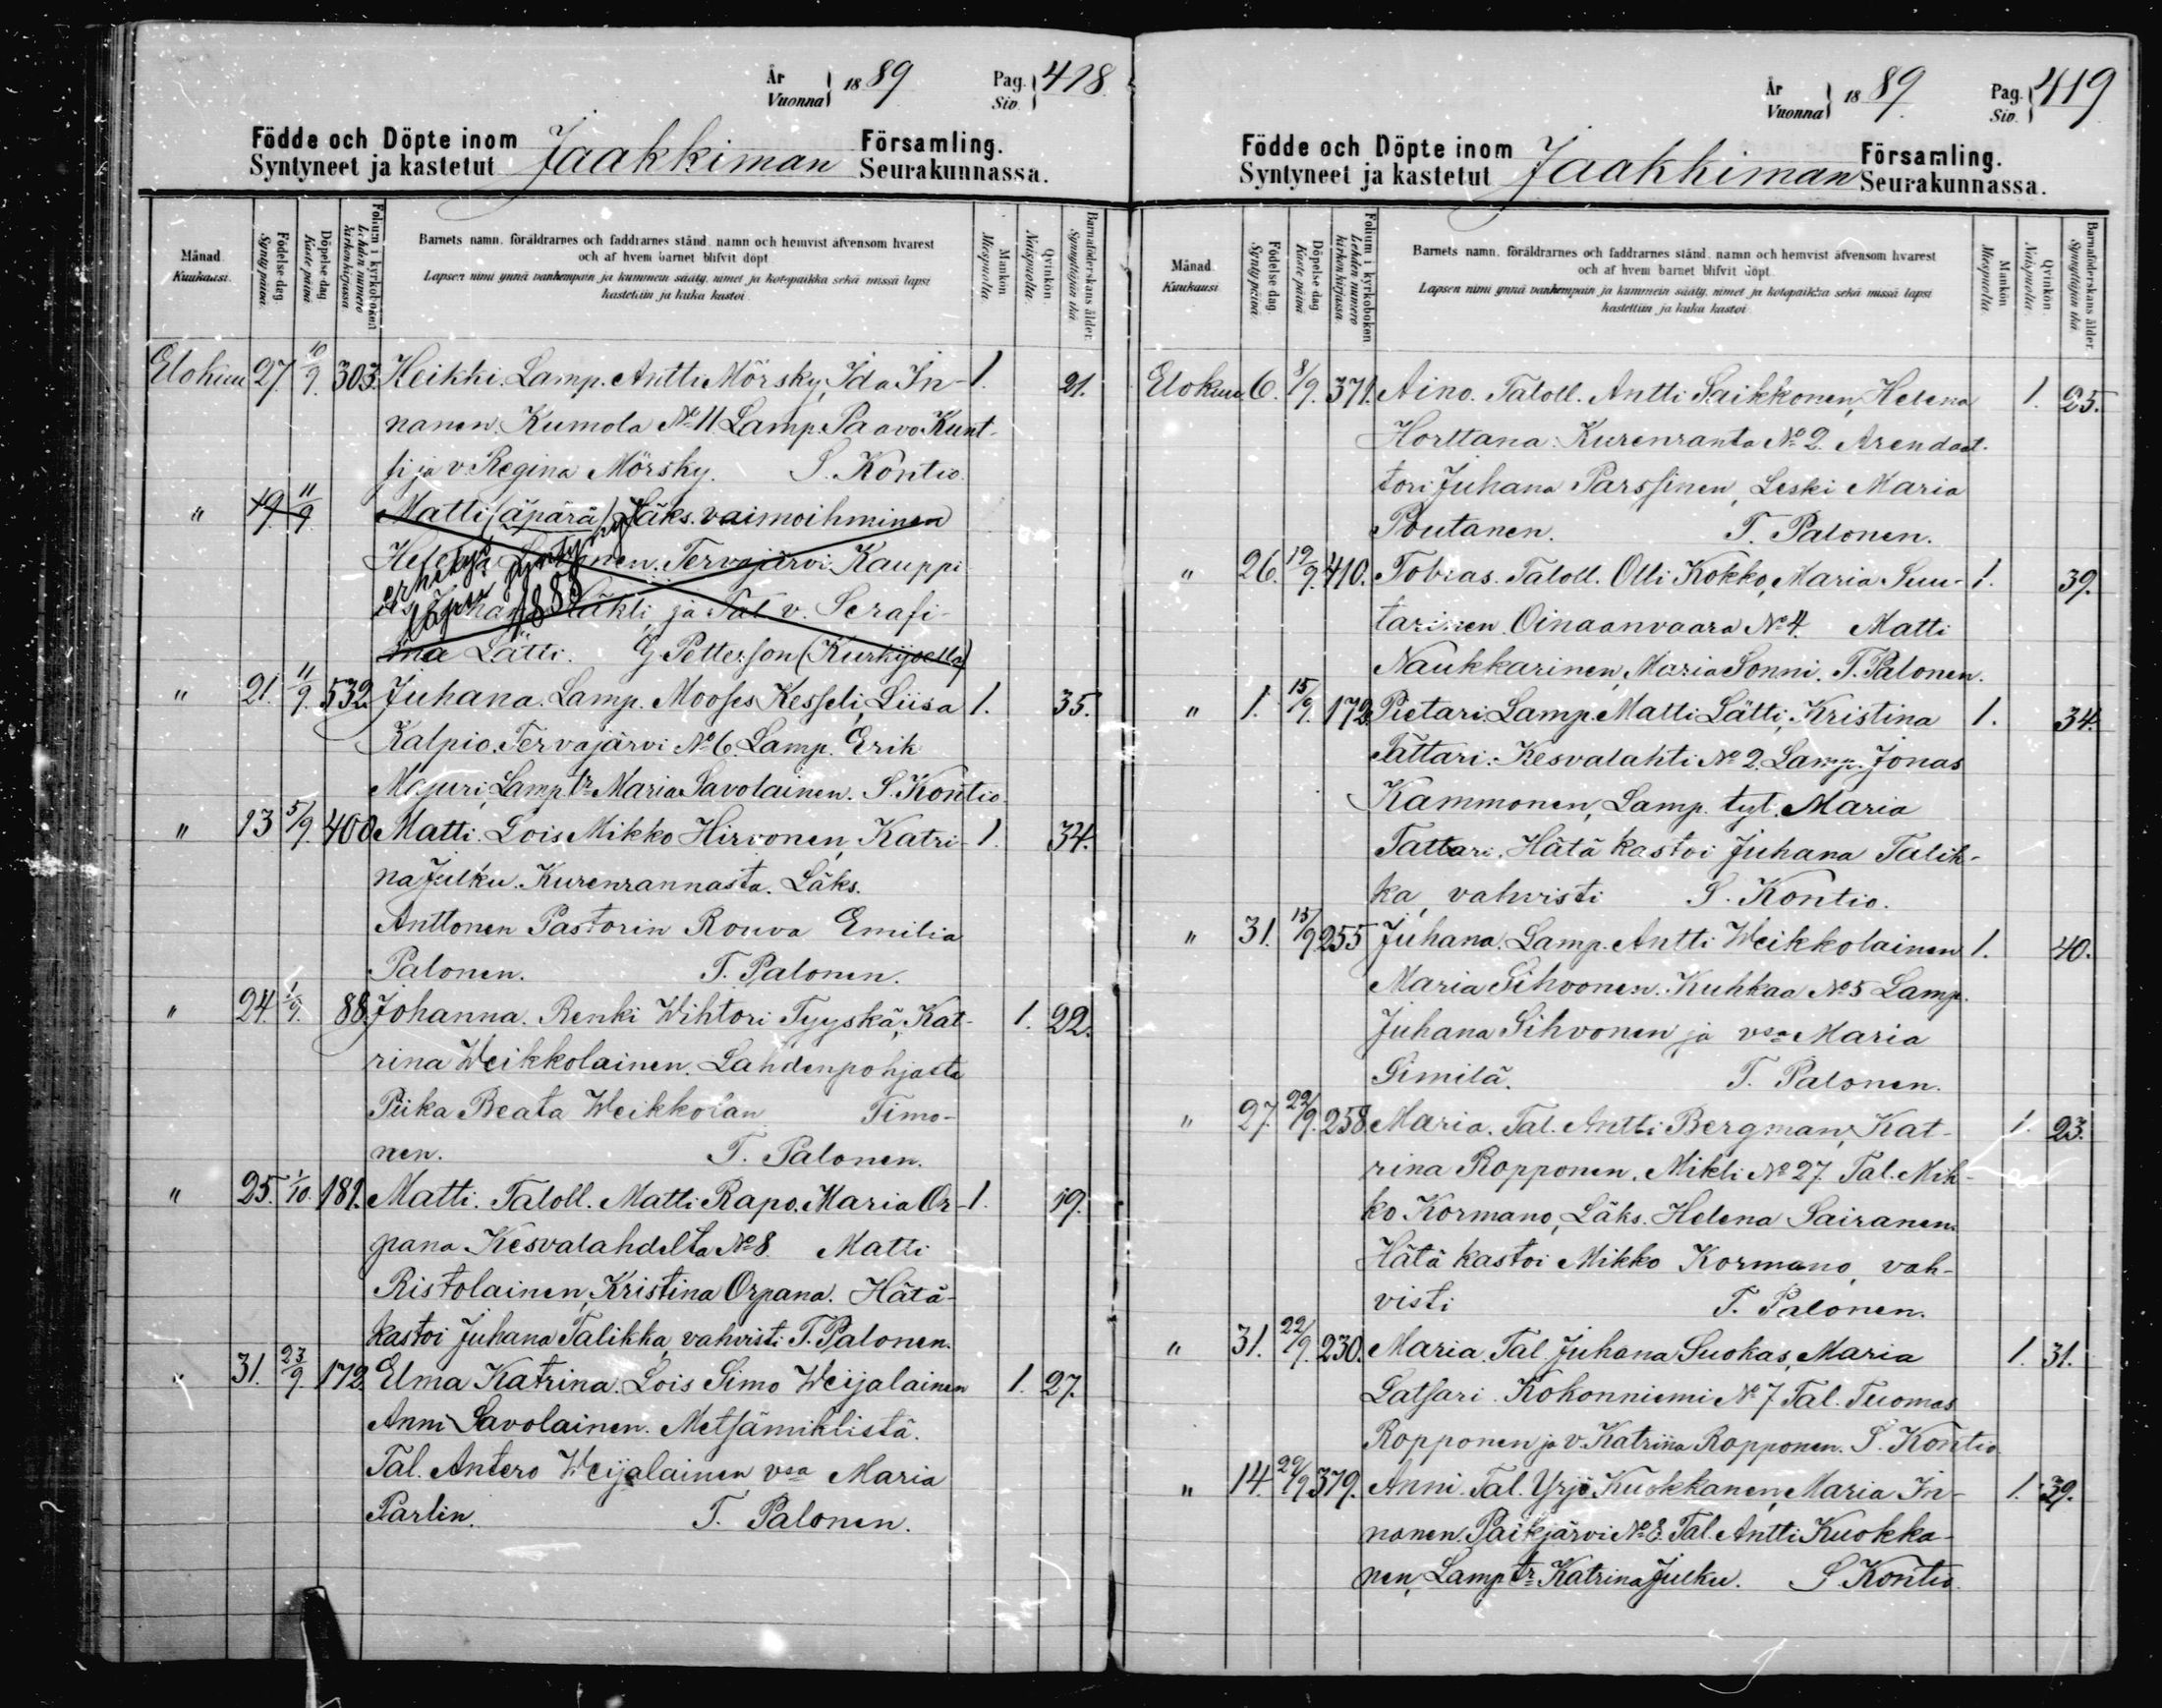 År Vuonna } 1889 Pag. Siv. } 418
Födde och Döpte inom Jaakkiman Församling.
Syntyneet ja kastetut Seurakunnassa.
Månad Kuukausi.
Födelse dag. Synty päivä.
Döpelse dag. Kaste päivä.
Folium i kyrkoboken Lehden numero kirkonkirjassa.
Barnets namn, föräldrarnes och faddrarnes stånd, namn och hemvist äfvensom hvarest
och af hvem barnet blifvit döpt.
Lapsen nimi ynnä vanhempain ja kummein sääty, nimet ja kotopaikka sekä missä lapsi
kastettiin ja kuka kastoi.
Mankön Miespuolta.
Qvinkön Naispuolta.
Barnaföderskans ålder. Synnyttäjän ikä.
Elokuu 27. 10/9. 303. Heikki. Lamp. Antti Mörsky, Ida In- 1. 21.
nanen. Kumola No 11 Lamp. Paavo Kunt-
si ja v. Regina Mörsky. S. Kontio.
" 19. 11/9 Matti (äpärä) Läks. vaimoihminen
Tervajärvi Kauppi
ja Tal. v. Serafi-
na Lätti. G Petterson (Kurkijoella)
erhetys
1888
" 21. 11/9. 532. Juhana. Lamp. Mooses Kesseli, Liisa 1. 35.
Kalpio. Tervajärvi No 6. Lamp. Erik
Majuri, Lamp. tr Maria Savolainen. S. Kontio.
" 13 5/9. 400 Matti. Lois Mikko Hirvonen, Katri- 1. 34.
na Julku. Kurenrannasta. Läks.
Anttonen Pastorin Rouva Emilia
Palonen. T. Palonen.
" 24. 1/9. 88. Johanna. Renki Wihtori Tyyskä, Kat- 1. 22.
rina Weikkolainen. Lahdenpohjasta
Piika Beata Weikkolan Timo-
nen. T. Palonen.
" 25. 1/10. 181. Matti. Taloll. Matti Rapo. Maria Or- 1. 19.
pana Kesvalahdelta No 8. Matti
Ristolainen, Kristina Orpana. Hätä-
kastoi Juhana Talikka, vahvisti T. Palonen.
" 31. 23/9. 172. Elma Katrina. Lois Simo Weijalainen 1. 27.
Anni Savolainen. Metsämiklistä.
Tal. Antero Weijalainen vsa Maria
Parlin. T. Palonen.
År Vuonna } 1889. Pag. Siv. } 419
Födde och Döpte inom Jaakkiman Församling.
Syntyneet ja kastetut Seurakunnassa.
Månad Kuukausi
Födelse dag. Synty päivä.
Döpelse dag. Kaste päivä.
Folium i kyrkoboken Lehden numero kirkonkirjassa.
Barnets namn, föräldrarnes och faddrarnes stånd, namn och hemvist äfvensom hvarest
och af hvem barnet blifvit döpt.
Lapsen nimi ynnä vanhempain ja kummein sääty, nimet ja kotopaikka sekä missä lapsi
kastettiin ja kuka kastoi.
Mankön Miespuolta.
Qvinkön Naispuolta.
Barnaföderskans ålder. Synnyttäjän ikä.
Elokuu 6. 8/9. 371. Aino. Taloll. Antti Saikkonen, Helena 1. 25.
Horttana: Kurenranta No 2. Arendaat-
tori Juhana Parssinen, Leski Maria
Poutanen. T. Palonen.
" 26. 12/9. 410. Tobias. Taloll. Olli Kokko, Maria Suu- 1. 39.
tarinen. Oinaanvaara No 4. Matti
Naukkarinen, Maria Sonni. T. Palonen.
" 1. 15/9. 172. Pietari. Lamp. Matti Lätti, Kristina 1. 34.
Tattari: Kesvalahti No 2. Lamp. Jonas
Kammonen, Lamp. tyt. Maria
Tattari. Hätä kastoi Juhana Talik-
ka, vahvisti S. Kontio.
" 31. 15/9 255 Juhana. Lamp. Antti Weikkolainen 1. 40.
Maria Sihvonen. Kuhkaa No 5 Lamp.
Juhana Sihvonen ja vsa Maria
Simila. T. Palonen.
" 27. 22/9. 258. Maria. Tal. Antti Bergman, Kat- 1. 23.
rina Ropponen. Mikli No 27. Tal. Mik-
ko Kormano, Läks. Helena Sairanen.
Hätä kastoi Mikko Kormano, vah-
visti T. Palonen.
" 31. 22/9. 230. Maria. Tal. Juhana Suokas, Maria 1. 31.
Latsari. Kokonniemi No 7. Tal. Tuomas
Ropponen ja v. Katriina Ropponen. S. Kontio
" 14. 29/9 379. Anni. Tal. Yrjö Kuokkanen, Maria In- 1. 39.
nanen. Paikjärvi No 8. Tal. Antti Kuokka-
nen, Lamp tr Katrina Julku. S. Kontio.